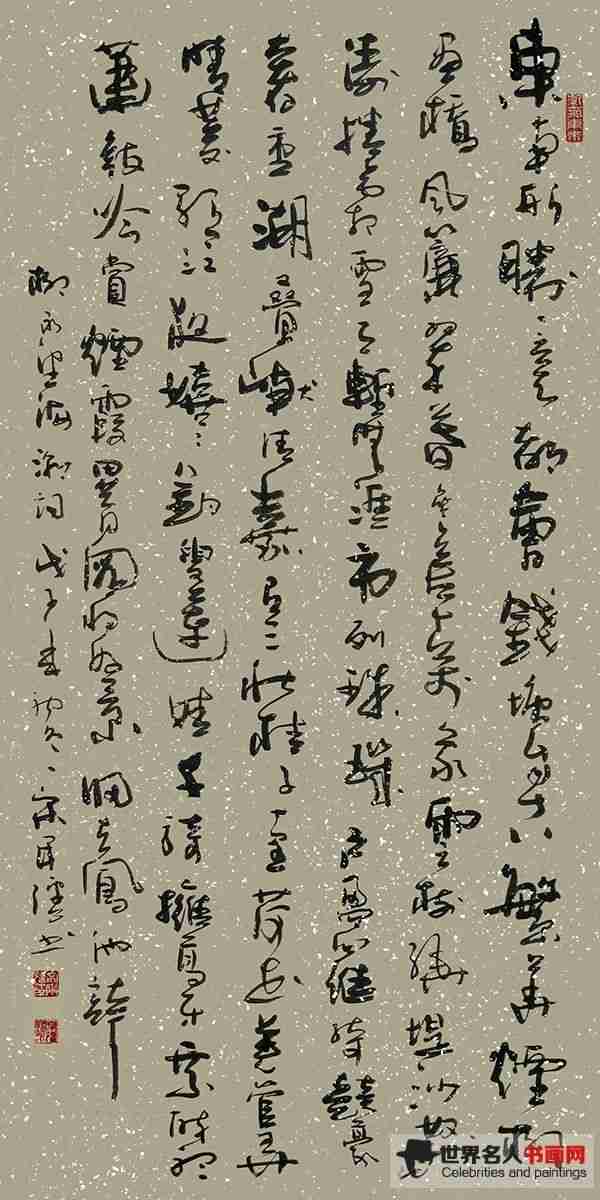 東南形勝三吳都會錢塘自古繁華煙柳
畫橋風簾翠幕參差十萬人家雲樹繞堤沙怒
濤捲霜雪天塹無涯市列珠璣戶盈羅綺競豪
奢重湖疊巘清嘉有三秋桂子十里荷花羌管弄
晴菱歌泛夜嬉嬉釣叟蓮娃千騎擁高牙乘醉聽
簫鼓吟賞煙霞異日圖將好景歸去鳳池誇
柳永望海潮詞戊子年初冬宋書
世界名人书画网
Celebrities and paintings